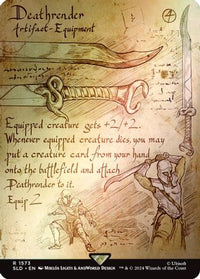 Deathrender
4
Artifact - Equipment
Equipped creature gets +2/+2.
Whenever equipped creature dies, you may
put a creature card from your hand
onto the battlefield and attach
Deathrender to it.
Equip 2
R 1573
SLD • EN MIKLÓS LIGETI & ANDWORLD DESIGN
© Ubisoft
™ & © 2024 Wizards of the Coast